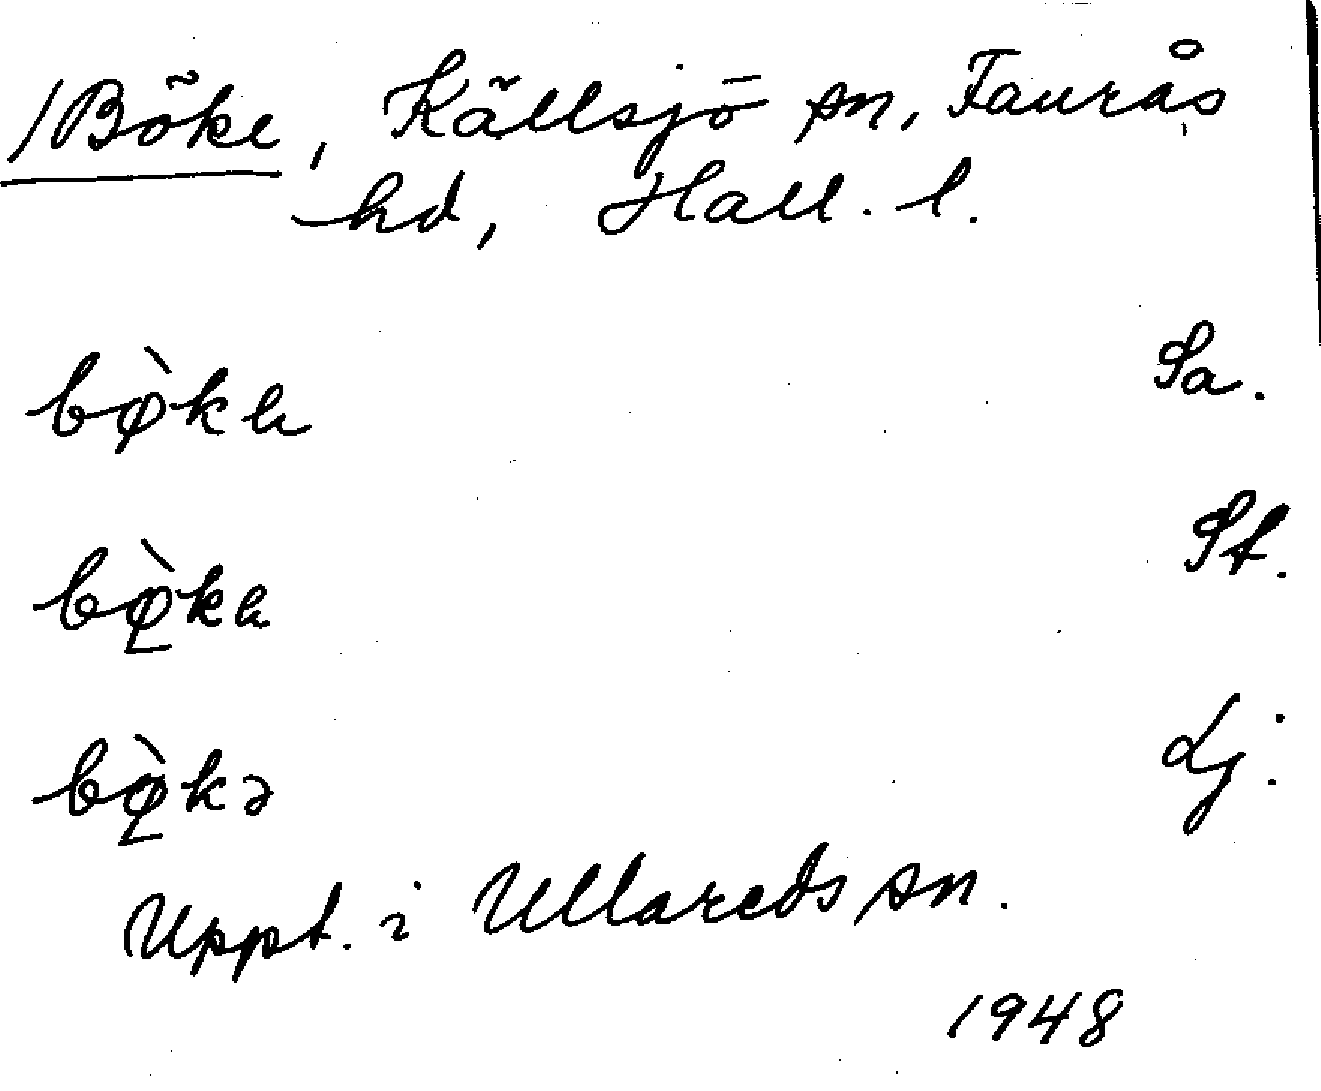 /Böke, Källsjö sn, Faurås
hd, Hall. l.
bø̀kɐ Sa.
bø̲̀kɐ St.
bø̲̀kə Lj.
Uppt. i Ullareds sn.
1948